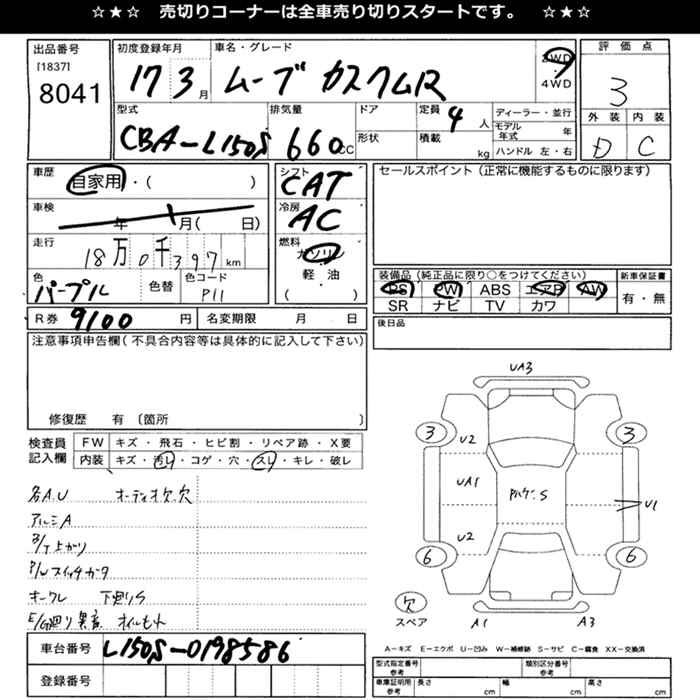 ☆★☆ 売切りコーナーは全車売り切りスタートです。 ☆★☆
出品番号
[1837]
8041
初度登録年月
17 3月
車名・グレード
ムーブ カスタムR
2WD
4WD
評価点
3
外装 内装
D C
型式
CBA-L150S
排気量
660cc
ドア
形状
定員
4人
積載
kg
ディーラー・並行
モデル年式 年
ハンドル 左・右
車歴
自家用・( )
車検
年 月( 日)
走行
18万0千397km
色
パープル
色替
色コード
P11
シフト
CAT
冷房
AC
燃料
ガソリン
軽・油
( )
セールスポイント(正常に機能するものに限ります)
装備品(純正品に限り○をつけてください)
PS PW ABS エアB AW
SR ナビ TV カワ
新車保証書
有・無
R券 9100円
名変期限 月 日
後日品
注意事項申告欄(不具合内容等は具体的に記入して下さい)
修復歴 有〔箇所 〕
検査員記入欄
FW キズ・飛石・ヒビ割・リペア跡・X要
内装 キズ・汚レ・コゲ・穴・スレ・キレ・破レ
各A.U オーディオ欠.穴
アルミA
B/T上がり
P/Wスイッチガタ
下廻りS
E/G廻り異音 オイルもれ
車台番号 L150S-0198586
登録番号
UA3
3
3
U2
UA1
U1
U2
6
6
欠
スペア
A1
A3
A-キズ E-エクボ U-凹み W-補修跡 S-サビ C-腐食 XX-交換済
型式指定番号
参考
類別区分番号
参考
車庫証明用
参考
長さ cm
幅 cm
高さ cm